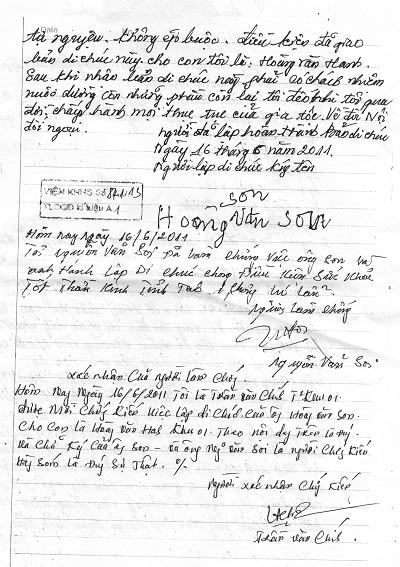 tự nguyện. không ép buộc. điều kiện đã giao
bản di chúc này cho con tôi là: Hoàng văn Hanh.
Sau khi nhận bản di chúc này phải có trách nhiệm
nuôi dưỡng còn những phần còn lại tôi đến khi tôi qua
đời, chấp hành mọi thủ tục của gia tộc. Về đối Nội
đối ngoại.
người đã lập hoàn thành bản di chúc
Ngày 16 tháng 6 năm 2011.
Người lập di chúc ký tên
VIỆN KHHS
TLGGĐ kí hiệu A1
Son
Hoàng Văn Son
Hôm nay ngày 16/6/2011
Tôi Nguyễn Văn Sơi Đã làm chứng việc ông Son và
anh Hanh Lập Di chúc trong Điều Kiện Sức Khỏe
Tốt Thần Kinh Tỉnh Táo
Người Làm chứng
Nguyễn Văn Sơi
Xác nhận Của người làm chứng
Hôm Nay Ngày 16/6/2011 Tôi là Trần Văn Chú Tr Khu 01.
được Mời Chứng Kiến việc lập di chúc của ông Hoàng Văn Son.
Cho con là Hoàng Văn Hanh Khu 01. Theo nội dung Trên là đúng.
Và Chữ Ký Của ông Son - và ông Nguyễn Văn Sơi là người Chứng Kiến
là Đúng Sự Thật.
Người xác nhận Chứng Kiến
Trần Văn Chú